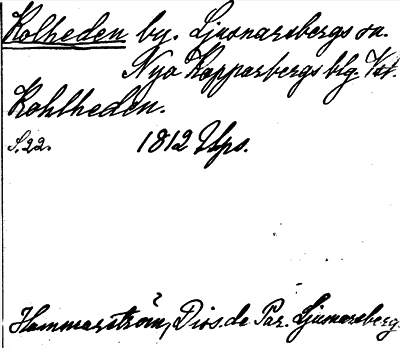 Kolheden by. Ljusnarsbergs sn.
Nya Kopparbergs blg. Vst.
Kohlheden.
S. 22. 1812 Ups.
Hammarström, Diss. de Par. Ljusnarsberg.